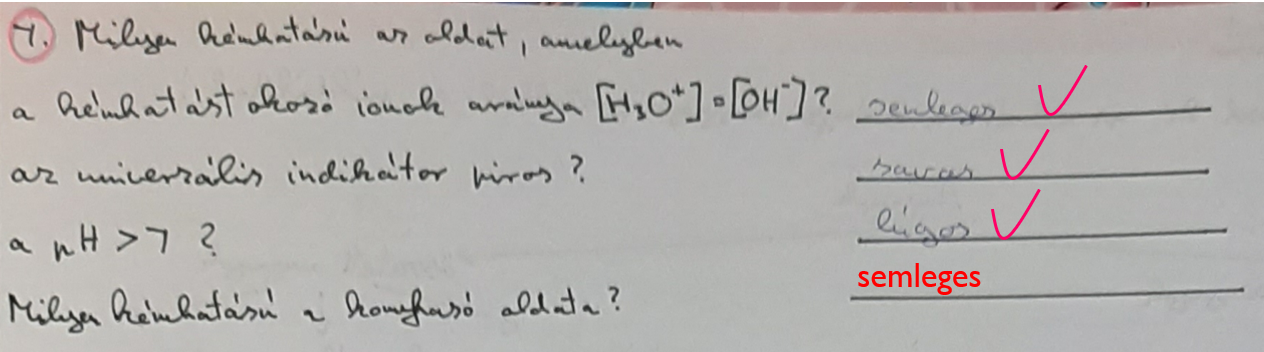 7. Milyen kémhatású az oldat, amelyben
a kémhatást okozó ionok aránya [H₃O⁺] = [OH⁻]? semleges
az univerzális indikátor piros? savas
a pH > 7 ? lúgos
semleges
Milyen kémhatású a konyhasó oldata?